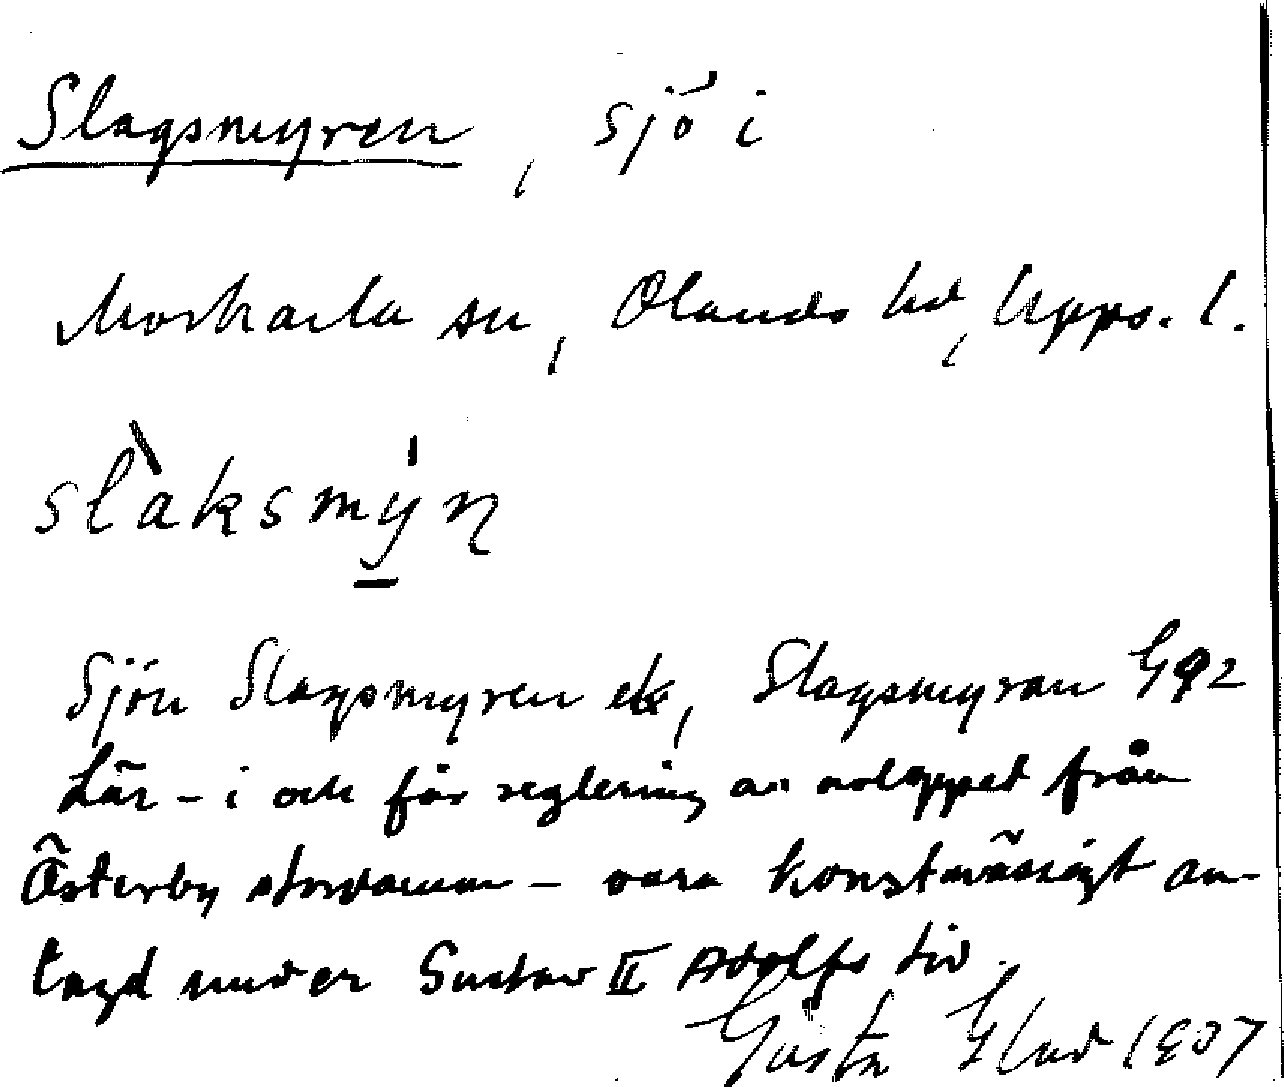 Slagsmyren, sjö i
Morkarla sn, Olands hd, Upps. l.
slàksmýn̥
Sjön Slagsmyren ek, Slagsmyran G92
Lär - i och för reglering av avloppet från
Österby stordamm - vara konstmässigt an-
lagd under Gustav II Adolfs tid.
Gösta 1907